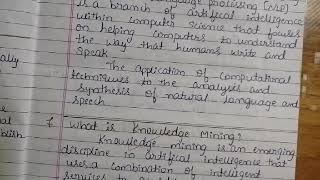 language processing (NLP)
is a branch of artifical intelligence
within computer science that focuses
on helping computers to understand
the way that humans write and
speak
The application of computational
techniques to the analysis and
synthesis of natural language and
speech
What is knowledge Mining?
Knowledge mining is an emerging
discipline in artifical intelligence that
uses a combination of intelligent
services to